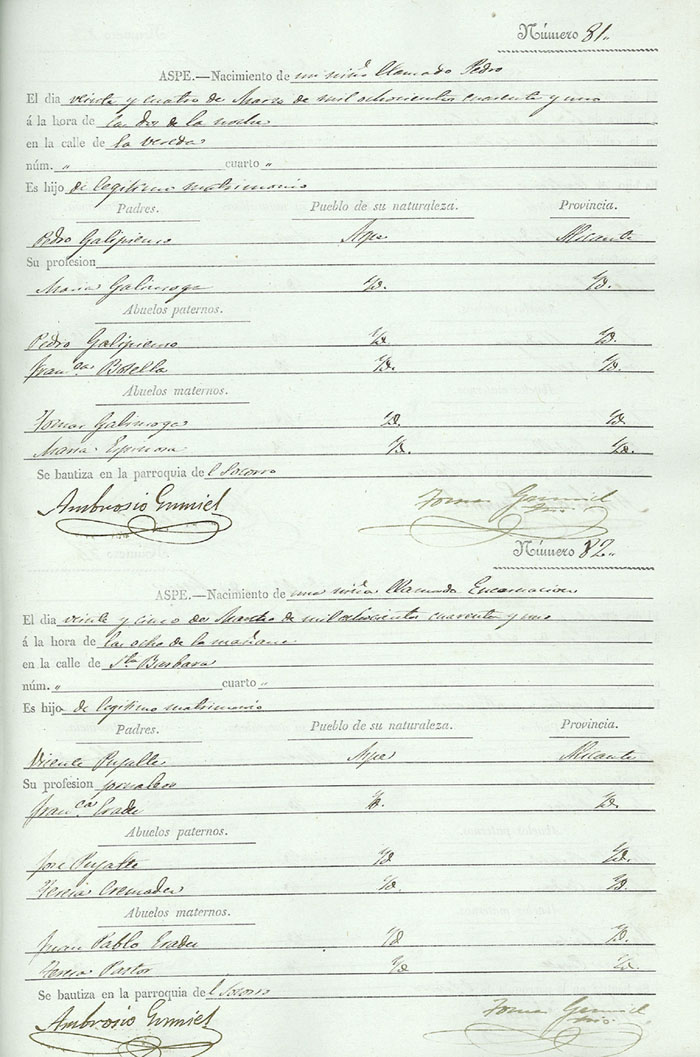 Número 81.
ASPE.—Nacimiento de un niño llamado Pedro
El dia veinte y cuatro de Marzo de mil ochocientos cuarenta y uno
á la hora de las dos de la noche
en la calle de la vereda
núm. " cuarto "
Es hijo de legitimo matrimonio
Padres. Pueblo de su naturaleza. Provincia.
Pedro Galipienso Aspe Alicante
Su profesion
Maria Yd. Yd.
Abuelos paternos.
Pedro Galipienso Yd. Yd.
Franca. Botella Yd. Yd.
Abuelos maternos.
Tomas Yd. Yd.
Maria Espinosa Yd. Yd.
Se bautiza en la parroquia del Socorro
Ambrosio Gumiel Tomas Gumiel
Número 82.
ASPE.—Nacimiento de una niña llamada Encarnacion
El dia veinte y cinco de Marzo de mil ochocientos cuarenta y uno
á la hora de las ocho de la mañana
en la calle de Sta. Barbara
núm. " cuarto "
Es hijo de legitimo matrimonio
Padres. Pueblo de su naturaleza. Provincia.
Vicente Pujalte Aspe Alicante
Su profesion jornalero
Franca. Yd. Yd.
Abuelos paternos.
José Pujalte Yd. Yd.
Teresa Cremades Yd. Yd.
Abuelos maternos.
Juan Pablo Yd Yd.
Teresa Pastor Yd Yd.
Se bautiza en la parroquia del Socorro
Ambrosio Gumiel Tomas Gumiel